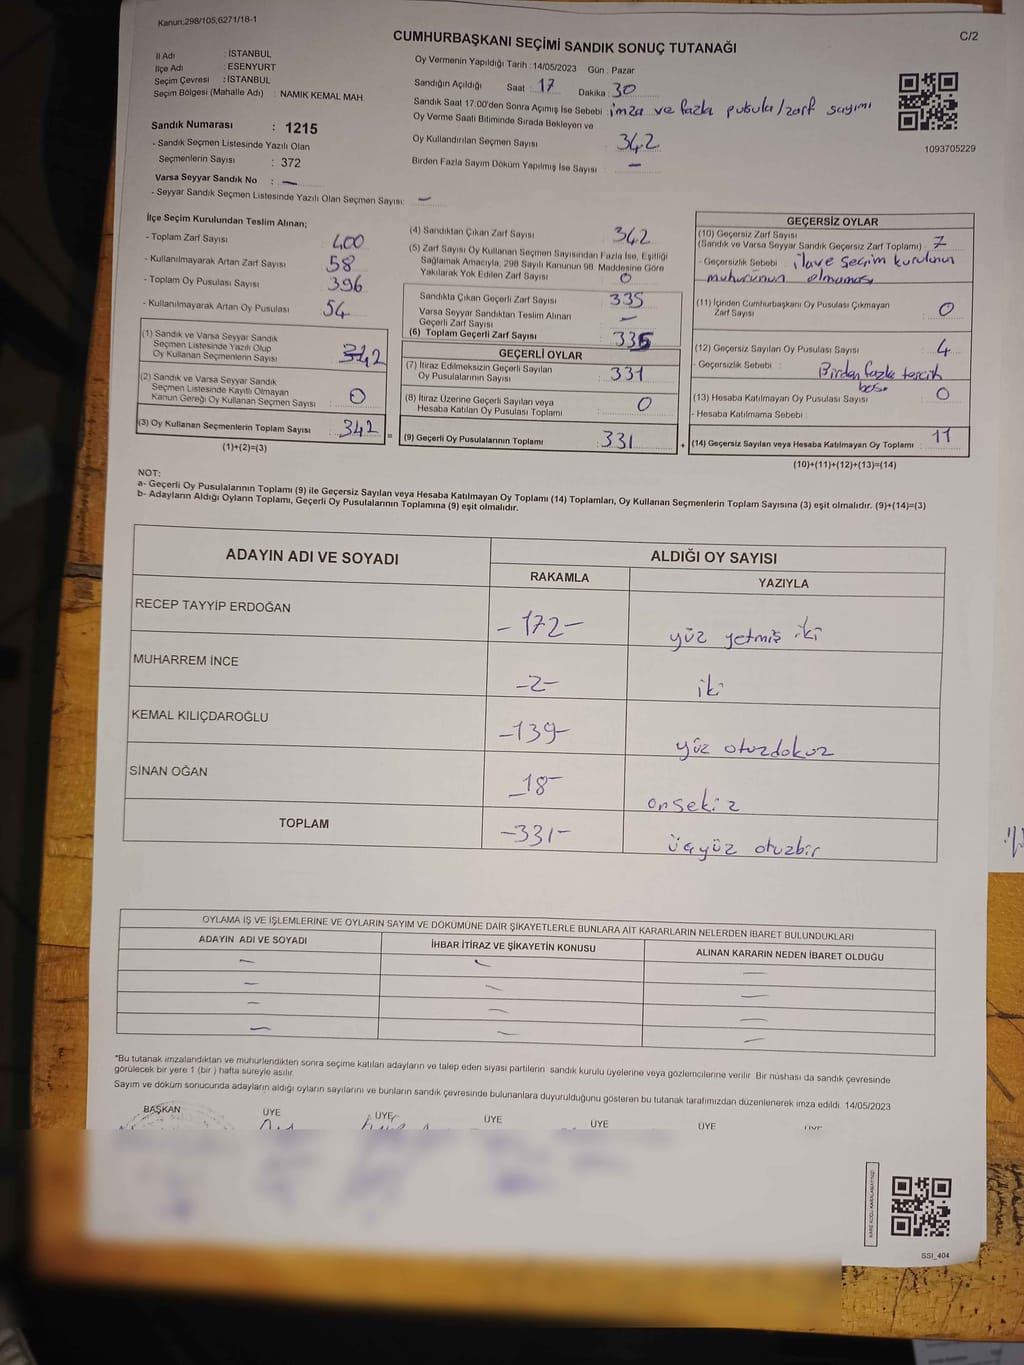 Kanun:298/105,6271/18-1
C/2
CUMHURBAŞKANI SEÇİMİ SANDIK SONUÇ TUTANAĞI
İl Adı : İSTANBUL
İlçe Adı : ESENYURT
Seçim Çevresi : İSTANBUL
Seçim Bölgesi (Mahalle Adı) : NAMIK KEMAL MAH.
Sandık Numarası : 1215
- Sandık Seçmen Listesinde Yazılı Olan
Seçmenlerin Sayısı : 372
Varsa Seyyar Sandık No : —
- Seyyar Sandık Seçmen Listesinde Yazılı Olan Seçmen Sayısı: —
Oy Vermenin Yapıldığı Tarih : 14/05/2023 Gün : Pazar
Sandığın Açıldığı Saat : 17 Dakika : 30
Sandık Saat 17:00'den Sonra Açılmış İse Sebebi : imza ve fazla pusula/zarf sayımı
Oy Verme Saati Bitiminde Sırada Bekleyen ve
Oy Kullandırılan Seçmen Sayısı : 342
Birden Fazla Sayım Döküm Yapılmış İse Sayısı : —
1093705229
İlçe Seçim Kurulundan Teslim Alınan;
- Toplam Zarf Sayısı : 400
- Kullanılmayarak Artan Zarf Sayısı : 58
- Toplam Oy Pusulası Sayısı : 396
- Kullanılmayarak Artan Oy Pusulası : 54
(1) Sandık ve Varsa Seyyar Sandık
Seçmen Listesinde Yazılı Olup
Oy Kullanan Seçmenlerin Sayısı : 342
(2) Sandık ve Varsa Seyyar Sandık
Seçmen Listesinde Kayıtlı Olmayan
Kanun Gereği Oy Kullanan Seçmen Sayısı : 0
(3) Oy Kullanan Seçmenlerin Toplam Sayısı : 342
(1)+(2)=(3)
(4) Sandıktan Çıkan Zarf Sayısı : 342
(5) Zarf Sayısı Oy Kullanan Seçmen Sayısından Fazla İse, Eşitliği
Sağlamak Amacıyla, 298 Sayılı Kanunun 98. Maddesine Göre
Yakılarak Yok Edilen Zarf Sayısı : 0
Sandıkta Çıkan Geçerli Zarf Sayısı : 335
Varsa Seyyar Sandıktan Teslim Alınan
Geçerli Zarf Sayısı : —
(6) Toplam Geçerli Zarf Sayısı : 335
GEÇERLİ OYLAR
(7) İtiraz Edilmeksizin Geçerli Sayılan
Oy Pusulalarının Sayısı : 331
(8) İtiraz Üzerine Geçerli Sayılan veya
Hesaba Katılan Oy Pusulası Toplamı : 0
= (9) Geçerli Oy Pusulalarının Toplamı : 331
GEÇERSİZ OYLAR
(10) Geçersiz Zarf Sayısı
(Sandık ve Varsa Seyyar Sandık Geçersiz Zarf Toplamı) : 7
- Geçersizlik Sebebi : ilave seçim kurulunun
muhurünün olmaması
(11) İçinden Cumhurbaşkanı Oy Pusulası Çıkmayan
Zarf Sayısı : 0
(12) Geçersiz Sayılan Oy Pusulası Sayısı : 4
- Geçersizlik Sebebi : Birden fazla tercih
boş
(13) Hesaba Katılmayan Oy Pusulası Sayısı : 0
- Hesaba Katılmama Sebebi :
+ (14) Geçersiz Sayılan veya Hesaba Katılmayan Oy Toplamı : 11
(10)+(11)+(12)+(13)=(14)
NOT:
a- Geçerli Oy Pusulalarının Toplamı (9) ile Geçersiz Sayılan veya Hesaba Katılmayan Oy Toplamı (14) Toplamları, Oy Kullanan Seçmenlerin Toplam Sayısına (3) eşit olmalıdır. (9)+(14)=(3)
b- Adayların Aldığı Oyların Toplamı, Geçerli Oy Pusulalarının Toplamına (9) eşit olmalıdır.
ADAYIN ADI VE SOYADI ALDIĞI OY SAYISI
RAKAMLA YAZIYLA
RECEP TAYYİP ERDOĞAN -172- yüz yetmiş iki
MUHARREM İNCE -2- iki
KEMAL KILIÇDAROĞLU -139- yüz otuzdokuz
SİNAN OĞAN -18- onsekiz
TOPLAM -331- üçyüz otuzbir
OYLAMA İŞ VE İŞLEMLERİNE VE OYLARIN SAYIM VE DÖKÜMÜNE DAİR ŞİKAYETLERLE BUNLARA AİT KARARLARIN NELERDEN İBARET BULUNDUKLARI
ADAYIN ADI VE SOYADI İHBAR İTİRAZ VE ŞİKAYETİN KONUSU ALINAN KARARIN NEDEN İBARET OLDUĞU
— — —
— — —
— — —
— — —
*Bu tutanak imzalandıktan ve mühürlendikten sonra seçime katılan adayların ve talep eden siyasi partilerin sandık kurulu üyelerine veya gözlemcilerine verilir. Bir nüshası da sandık çevresinde
görülecek bir yere 1 (bir ) hafta süreyle asılır.
Sayım ve döküm sonucunda adayların aldığı oyların sayılarını ve bunların sandık çevresinde bulunanlara duyurulduğunu gösteren bu tutanak tarafımızdan düzenlenerek imza edildi. 14/05/2023
BAŞKAN ÜYE ÜYE ÜYE ÜYE ÜYE ÜYE
SSI_404